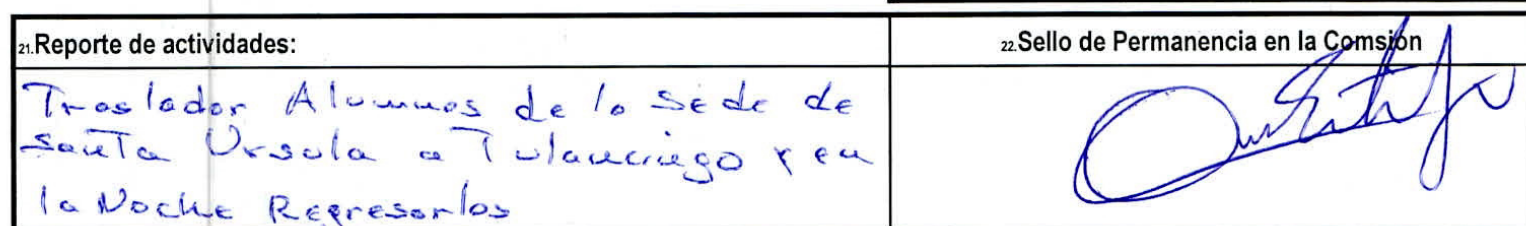 21.Reporte de actividades:
22.Sello de Permanencia en la Comsión
Trasladar Alumnos de la Sede de
Santa Ursula a Tulancingo y en
la Noche Regresarlos